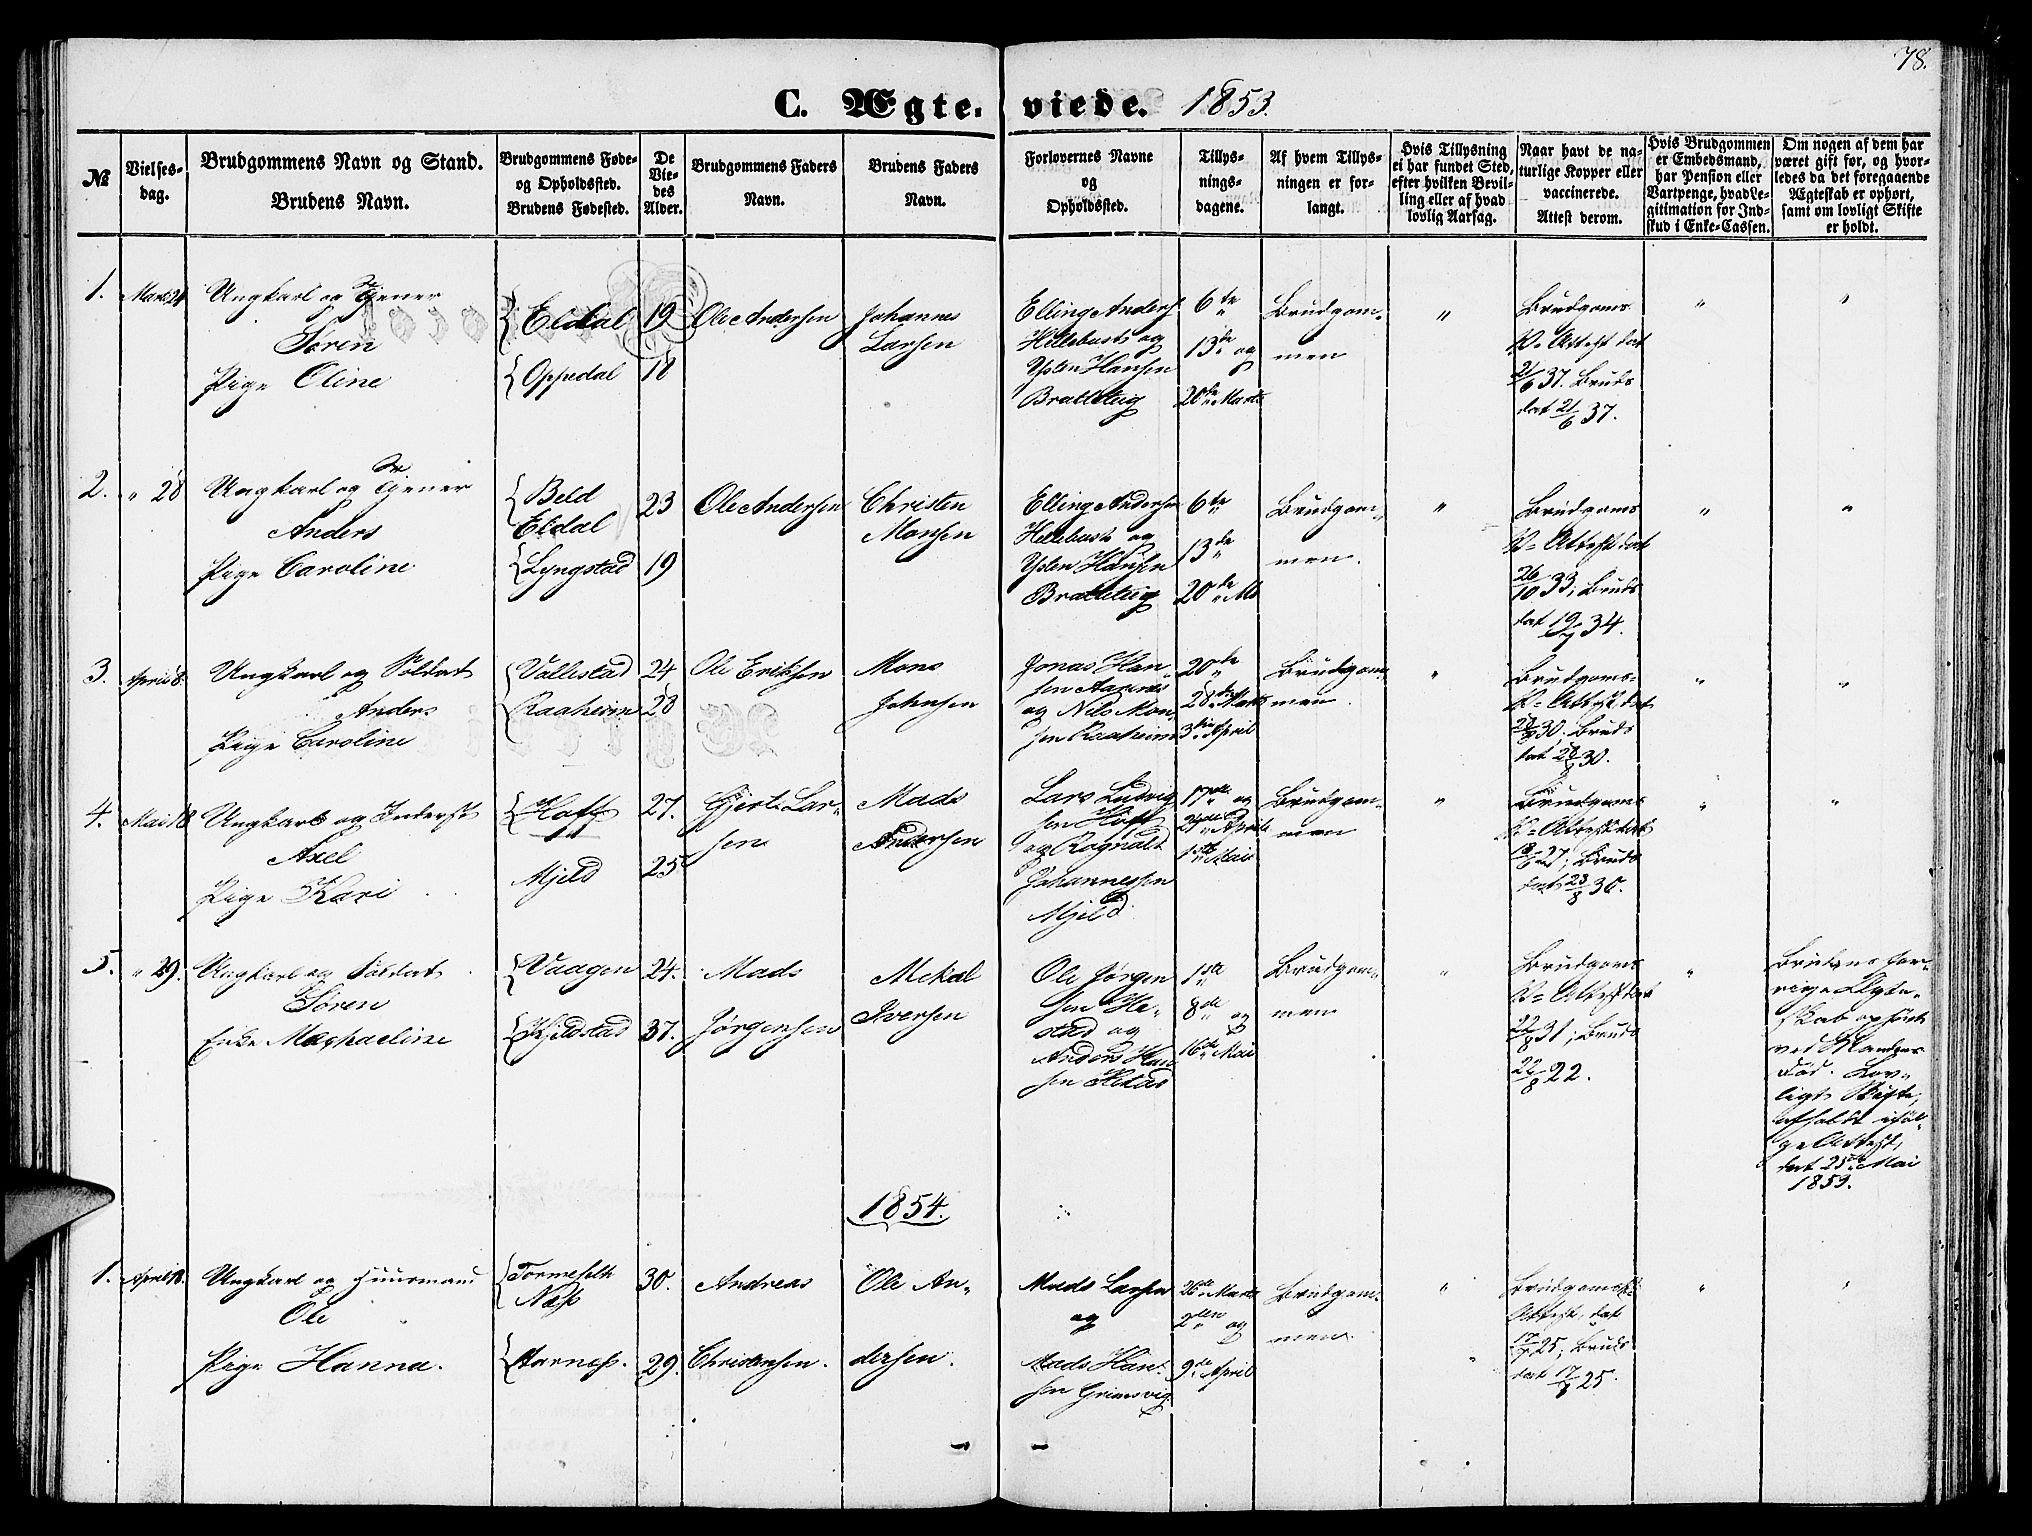 78.
C. Ægte- viede. 1853.
№
Vielses-
dag.
Brudgommens Navn og Stand.
Brudens Navn.
Brudgommens Føde-
og Opholdssted.
Brudens Fødested.
De
Vie-
des
Alder.
Brudgommens Faders
Navn.
Brudens Faders
Navn.
Forlovernes Navne
og
Opholdssted.
Tillys-
nings-
dagene.
Af hvem Tillys-
ningen er for-
langt.
Hvis Tillysning
ei har fundet Sted,
efter hvilken Bevil-
ling eller af hvad
lovlig Aarsag.
Naar havt de na-
turlige Kopper eller
vaccinerede.
Attest derom.
Hvis Brudgommen
er Embedsmand,
har Pension eller
Vartpenge, hvad Le-
gitimation for Ind-
skud i Enke-Cassen.
Om nogen af dem har
været gift før, og hvor-
ledes da det foregaaende
Ægteskab er ophørt,
samt om lovligt Skifte
er holdt.
1.
Marts 24
Ungkarl og Tjener
Søren
Pige Oline
Eldal
Oppedal
19
18
Ole Andersen
Johannes
Larsen
Elling Anders
Hellebust og
Hansen
6te
13de og
20de Marts
Brudgom-
men
"
Brudgoms
V-Attest dat
21/6 37. Bruds
dat 21/6 37.
"
"
2.
" 28
Ungkarl og Tjener
Anders
Pige Caroline
Beld
Eldal
Lyngstad
23
19
Ole Andersen
Christen
Monsen
Elling Andersen
Hellebust og
Hansen
6te
13de
20de Ma
Brudgom-
men.
"
Brudgoms
V-Attest dat
26/10 33; Bruds
dat 19/7 34.
"
"
3.
April 8.
Ungkarl og Soldat
Anders
Pige Caroline
Vallestad
Raaheim
24
28
Ole Eriksen
Mons
Johnsen
Jonas Han-
sen Aarnes
og Nils Mon-
sen Raaheim
20de
28de Marts
3die April
Brudgom
men.
"
Brudgoms-
V-Attest dat
28/8 30. Bruds
dat 28/8 30.
"
"
4.
Mai 18
Ungkarl og Inderst
Axel
Pige Kari
Hoff
Mjeld
27.
25
Gjert Lar-
sen
Mads
Andersen
Lars Ludvig
sen Hoff
og Rognald
Johannessen
Mjeld
17de og
24de April
1ste Mai
Brudgom-
men
"
Brudgoms
V-Attest dat
27; Bruds
dat 23/8 30.
"
"
5.
" 29.
Ungkarl og Soldat
Søren
Enke
Vaagen
Kjeldstad
24.
37.
Mads
Jørgensen
Mekal
Iversen
Ole Jørgen
sen He-
stad og
Anders Han
sen Hestad
1ste
8de og
16de Mai
Brudgom-
men
"
Brudgoms
V-Attest dat
22/8 31; Bruds
22/8 22.
"
Brudens for-
rige Ægte-
skab ophørt
ved Mandens
Død. Lov-
ligt Skifte
afholdt iføl-
ge Attest,
dat 25de Mai
1853.
1854.
1.
April 18.
Ungkarl og Huusmand
Ole
Pige Hanna.
Næss
Aarnæs.
30.
29.
Andreas
Christensen.
Ole An-
dersen.
Mads Larsen
og
Mads Han-
sen Grimsvig
26de Marts
2den og
9de April
Brudgom-
men.
"
Brudgoms V
Attest, dat
17/7 25; Bruds
dat 17/7 25.
"
"